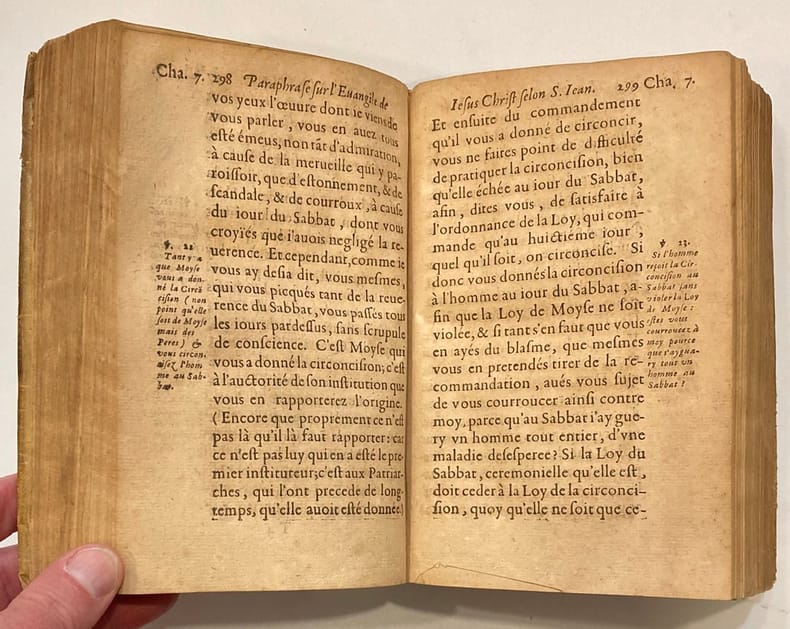 Cha. 7. 298 Paraphrase sur l'Euangile de
vos yeux l'œuure dont ie viens de
vous parler, vous en auez tous
esté émeus, non tāt d'admiration,
à cause de la merueille qui y pa-
roissoit, que d'estonnement, & de
scandale, & de courroux, à cause
du iour du Sabbat, dont vous
croyiés que i'auois negligé la re-
uerence. Et cependant, comme ie
vous ay desia dit, vous mesmes,
qui vous picqués tant de la reue-
rence du Sabbat, vous passés tous
les iours pardessus, sans scrupule
de conscience. C'est Moyse qui
vous a donné la circoncision; c'est
à l'auctorité de son institution que
vous en rapporterez l'origine.
(Encore que proprement ce n'est
pas là qu'il là faut rapporter: car
ce n'est pas luy qui en a esté le pre-
mier instituteur; c'est aux Patriar-
ches, qui l'ont precede de long-
temps, qu'elle auoit esté donnée.)
ꝟ. 22
Tant y a
que Moyse
vous a don-
né la Circō
cision (non
point qu'elle
soit de Moyse
mais des
Peres) &
vous circon-
cisez l'hom
me au Sab-
bat.
Iesus Christ selon S. Iean. 299 Cha. 7.
Et ensuite du commandement
qu'il vous a donné de circoncir,
vous ne faites point de difficulté
de pratiquer la circoncision, bien
qu'elle échée au iour du Sabbat,
afin, dites vous, de satisfaire à
l'ordonnance de la Loy, qui com-
mande qu'au huictiéme iour,
quel qu'il soit, on circoncise. Si
donc vous donnés la circoncision
à l'homme au iour du Sabbat, a-
fin que la Loy de Moyse ne soit
violée, & si tant s'en faut que vous
en ayés du blasme, que mesmes
vous en pretendés tirer de la re-
commandation, aués vous sujet
de vous courroucer ainsi contre
moy, parce qu'au Sabbat i'ay gue-
ry vn homme tout entier, d'vne
maladie desesperee? Si la Loy du
Sabbat, ceremonielle qu'elle est,
doit ceder à la Loy de la circonci-
sion, quoy qu'elle ne soit que ce-
ꝟ. 23.
Si l'homme
reçoit la Cir-
concision au
Sabbat sans
violer la Loy
de Moyse:
estes vous
courroucez à
moy pource
que i'ay gua-
ry tout vn
homme au
Sabbat?